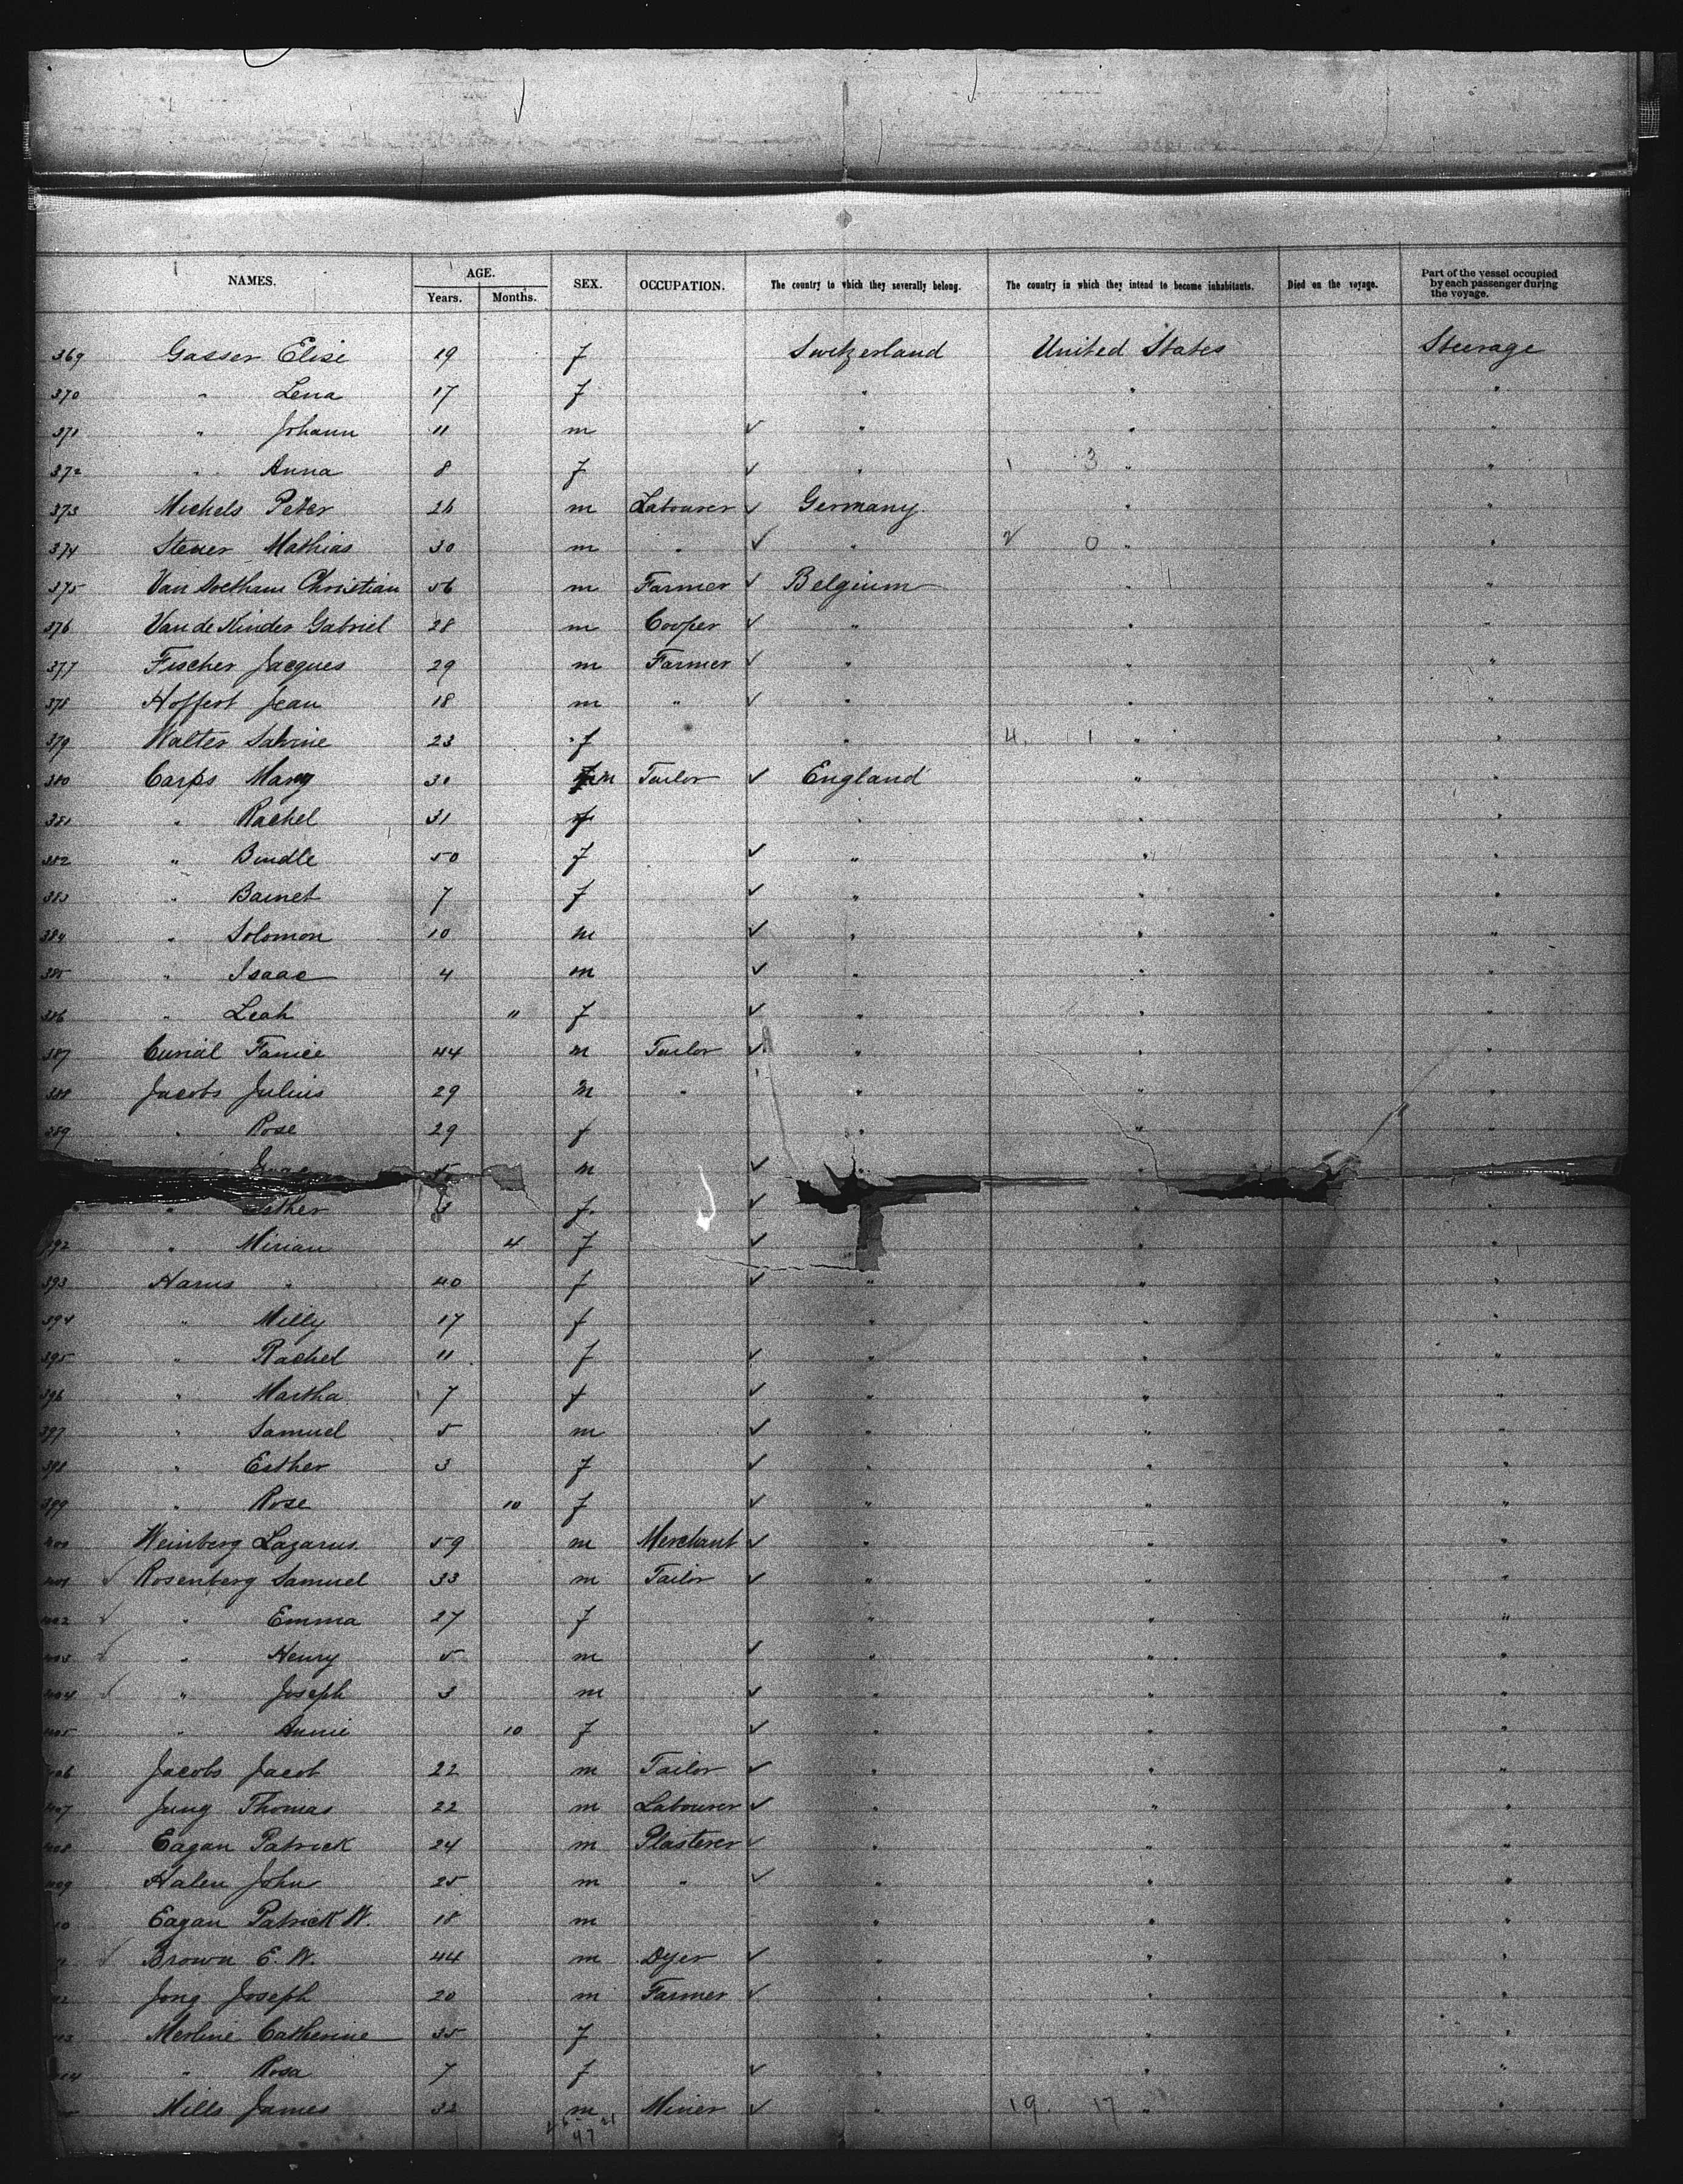 NAMES. AGE. Years. Months. SEX. OCCUPATION. The country to which they severally belong. The country in which they intend to become inhabitants. Died on the voyage. Part of the vessel occupied by each passenger during the voyage.
369 Gasser Elise 19 f Switzerland United States Steerage
370 " Lena 17 f " " "
371 " Johann 11 m ✓ " " "
372 " Anna 8 f ✓ " 1 3 " "
373 Michels Peter 26 m Labourer ✓ Germany " "
374 Steuer Mathias 30 m " ✓ " 2 0 " "
375 Van Christian 56 m Farmer ✓ Belgium " "
376 Van de Kinder Gabriel 28 m Cooper ✓ " " "
377 Fischer Jacques 29 m Farmer ✓ " " "
378 Hoffert Jean 18 m " ✓ " " "
379 Walter Sabine 23 f " 4. 1 " "
380 Carps Marg 30 m Tailor ✓ England " "
381 " Rachel 31 f " " "
382 " Bindle 50 f ✓ " " "
383 " Barnet 7 f ✓ " " "
384 " Solomon 10 m ✓ " " "
385 " Isaac 4 m ✓ " " "
386 " Leah " f ✓ " " "
387 Curial Fanice 44 m Tailor ✓ " " "
388 Jacobs Julius 29 m " " " "
389 " Rose 29 f " " "
Isaac 5 m ✓ " "
" Esther 3 f. ✓ " "
392 " Miriam 4 f ✓ " "
393 Harris " 40 f ✓ " " "
394 " Milly 17 f " " "
395 " Rachel 11 f ✓ " " "
396 " Martha 7 f ✓ " " "
397 " Samuel 5 m ✓ " " "
398 " Esther 3 f ✓ " " "
399 " Rose 10 f ✓ " " "
400 Weinberg Lazarus 59 m Merchant ✓ " " "
401 ✓ Rosenberg Samuel 33 m Tailor ✓ " " "
402 ✓ " Emma 27 f " " "
403 ✓ " Henry 5 m ✓ " " "
404 ✓ " Joseph 3 m ✓ " " "
405 " Annie 10 f ✓ " " "
406 Jacobs Jacob 22 m Tailor ✓ " " "
407 Jung Thomas 22 m Labourer ✓ " " "
408 Eagan Patrick 24 m Plasterer ✓ " " "
409 Halen John 25 m " ✓ " " "
10 Eagan Patrick W. 18 m " " "
✓ Brown E. W. 44 m Dyer ✓ " " "
12 Jong Joseph 20 m Farmer ✓ " " "
13 Merline Catherine 35 f " " "
414 " Rosa 7 f ✓ " " "
Mills James 32 m Miner ✓ " 19. 17 " "
26 21
47